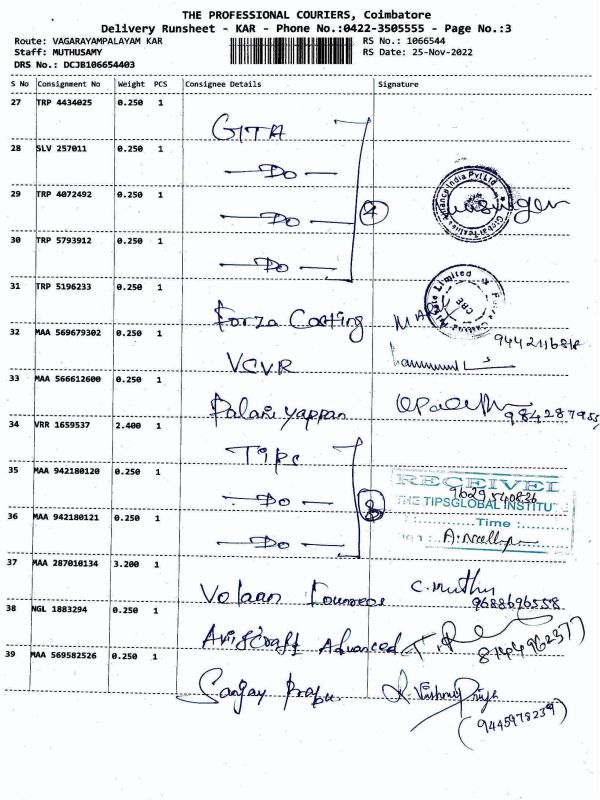 THE PROFESSIONAL COURIERS, Coimbatore
Delivery Runsheet - KAR - Phone No.:0422-3505555 - Page No.:3
Route: VAGARAYAMPALAYAM KAR
RS No.: 1066544
Staff: MUTHUSAMY
RS Date: 25-Nov-2022
DRS No.: DCJB106654403
S No Consignment No Weight PCS Consignee Details Signature
27 TRP 4434025 0.250 1
GITA
28 SLV 257011 0.250 1
Do
29 TRP 4072492 0.250 1
Do
30 TRP 5793912 0.250 1
Do
31 TRP 5196233 0.250 1
Forza Coating
9442116818
32 MAA 569679302 0.250 1
VCVR
33 MAA 566612600 0.250 1
Palaniyappan
34 VRR 1659537 2.400 1
Tips
35 MAA 942180120 0.250 1
Do
RECEIVE
9629540836
THE TIPSGLOBAL INSTITU
Time :
36 MAA 942180121 0.250 1
Do
37 MAA 287010134 3.200 1
C. Muthu
9688696558
38 NGL 1883294 0.250 1
Advanced
8144962377
39 MAA 569582526 0.250 1
Sanjay Prapu
(9445978239)